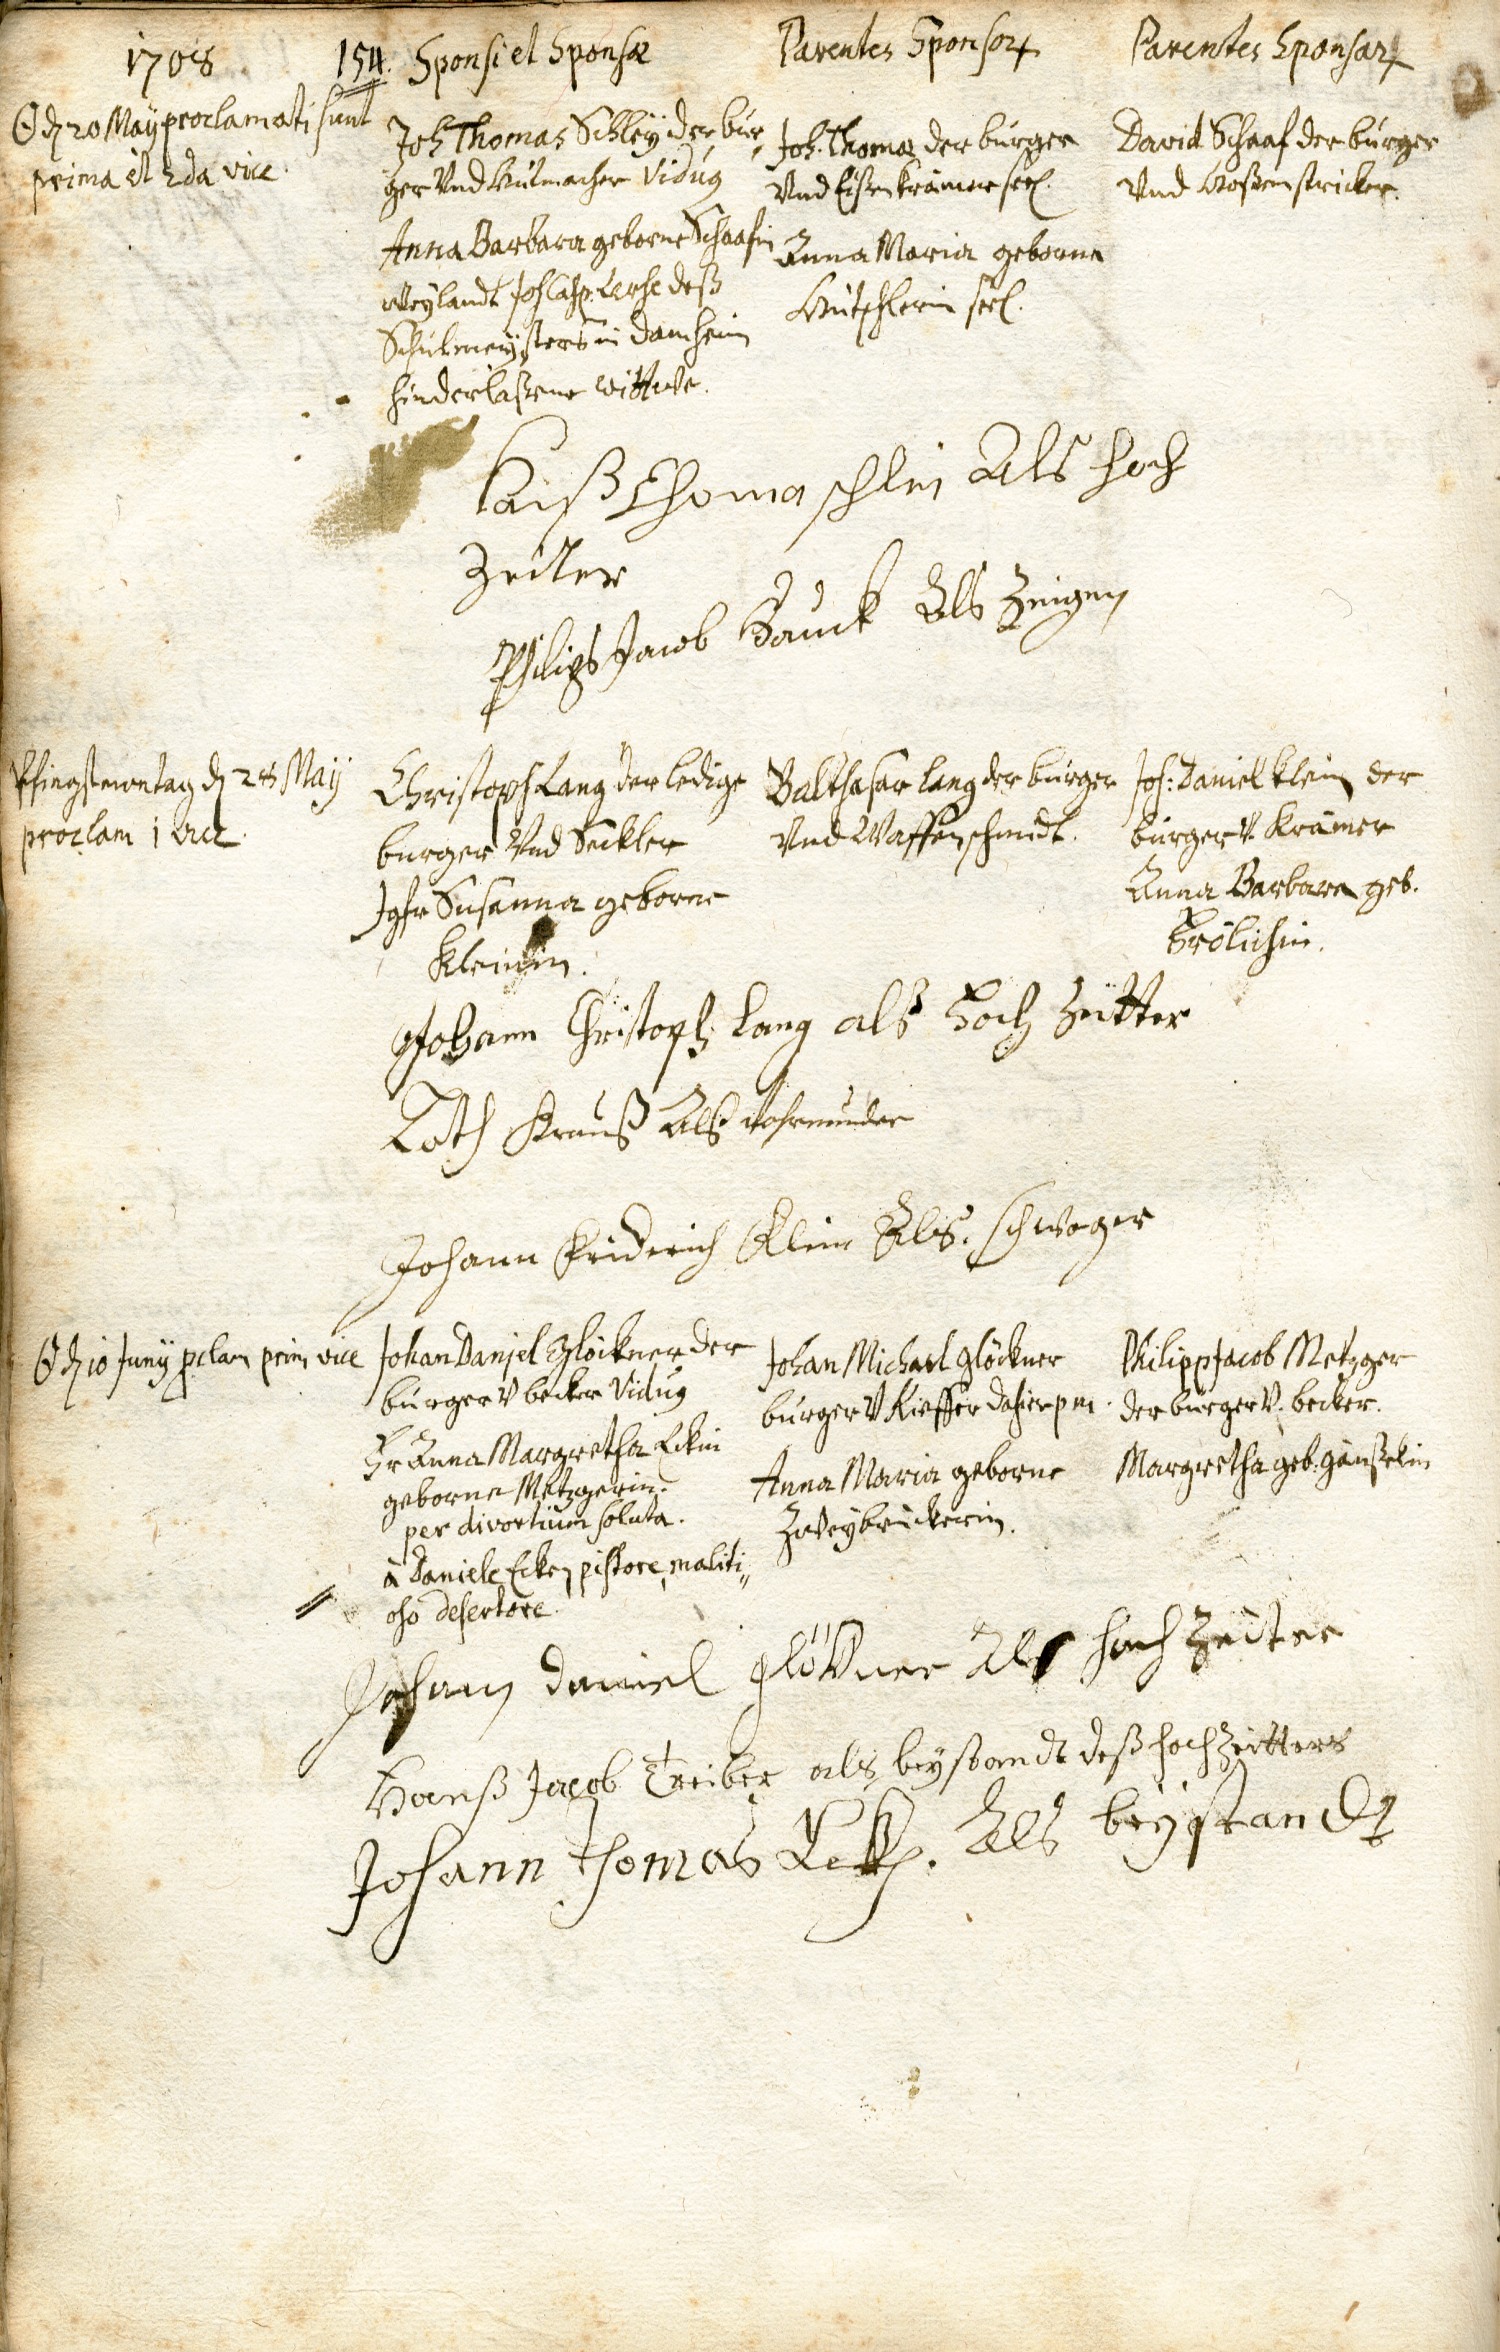 1708
154. Sponsi et Sponsæ
Parentes Sponsor
Parentes Sponsar
☉ d 20 Maÿ proclamati sunt
prima et 2da vice.
Joh Thomas Schleÿ der bur,
ger Vnd Hutmacher Viduus
Anna Barbara geborne Schaafin
Weylandt Joh Casp. Lerse deß
Schulmeisters in Damheim
hinderlaßene Wittwe.
Joh. Thomas der burger
Vnd Eißenkrämer seel.
Anna Maria geborne
Hütschlerin seel.
David Schaaf der burger
Vnd Hoßenstricker.
Hanß Thoma schlei Als hoch
Zeiter
Philips Jacob Hauck Als Zeigen
Pfingstmontag d 28 Maÿ
proclam 1 vice.
Christoph Lang der ledige
burger Vnd Seckler
Jgfr Susanna geborne
Kleinin.
Balthasar lang der burger
Vnd Waffenschmidt.
Joh: Daniel Klein der
burger V. Krämer
Anna Barbara geb.
Frölichin.
Johann Christoph lang als Hoch Zeitter
Loth Krauß Als Vohrmunder
Johann Friderich Klein Als. schwager
☉ d 10 Junÿ pclam prim vice
Johan Daniel Glöckner der
burger V becker Viduus
Fr Anna Margretha Eckin
geborne Metzgerin.
per divortium soluta.
à Daniele Ecken pistore, maliti,,
oso desertore.
Johan Michael glöckner
burger V Kieffer dahier p m.
Anna Maria geborne
Zweÿbrückerin.
Philipp Jacob Metzger
der burger V. becker.
Margretha geb. Gänßelin
Johann Daniel glöckner Als hoch Zeiter
Hanß Jacob Treiber als beystandt deß hochZeitters
Johann Thomas . Als beÿstandt